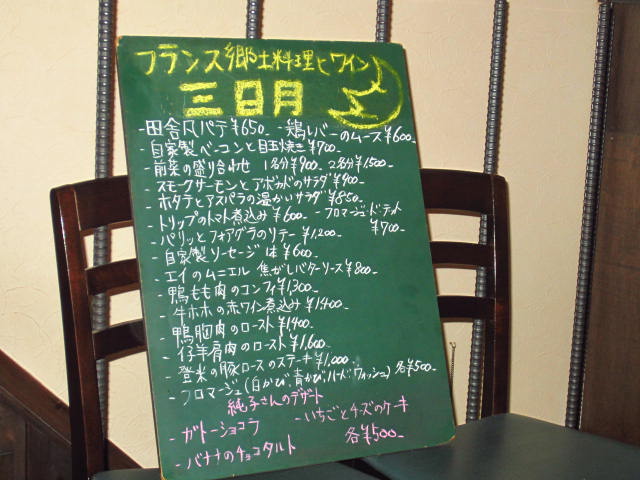 フランス郷土料理とワイン
三日月
-田舎风パテ¥650. -鶏レバーのムース¥600-
自家製ベーコンと目玉焼き¥700-
-前菜の盛り合わせ 1名分¥900- 2名分¥1,500-
-スモークサーモンとアボカドのサラダ¥900-
-ホタテとアスパラの温かいサラダ¥850-
-トリップのトマト煮込み¥600- -フロマージュ・ド・テット
¥700-
-パリッとフォアグラのソテー¥1,200-
自家製ソーセージ1本¥600-
-エイのムニエル 焦がしバターソース¥800-
-鴨もも肉のコンフィ¥1,300-
-牛ホホの赤ワイン煮込み¥1,400-
-鴨胸肉のロースト¥1,400-
-仔羊肩肉のロースト¥1,600-
-登米の豚ロースのステーキ¥1,000-
-フロマージュ(白かび,青かび,ハード,ウォッシュ)各¥500-
純子さんのデザート
-ガトーショコラ -いちごとチーズのケーキ
-バナナのチョコタルト 各¥500-